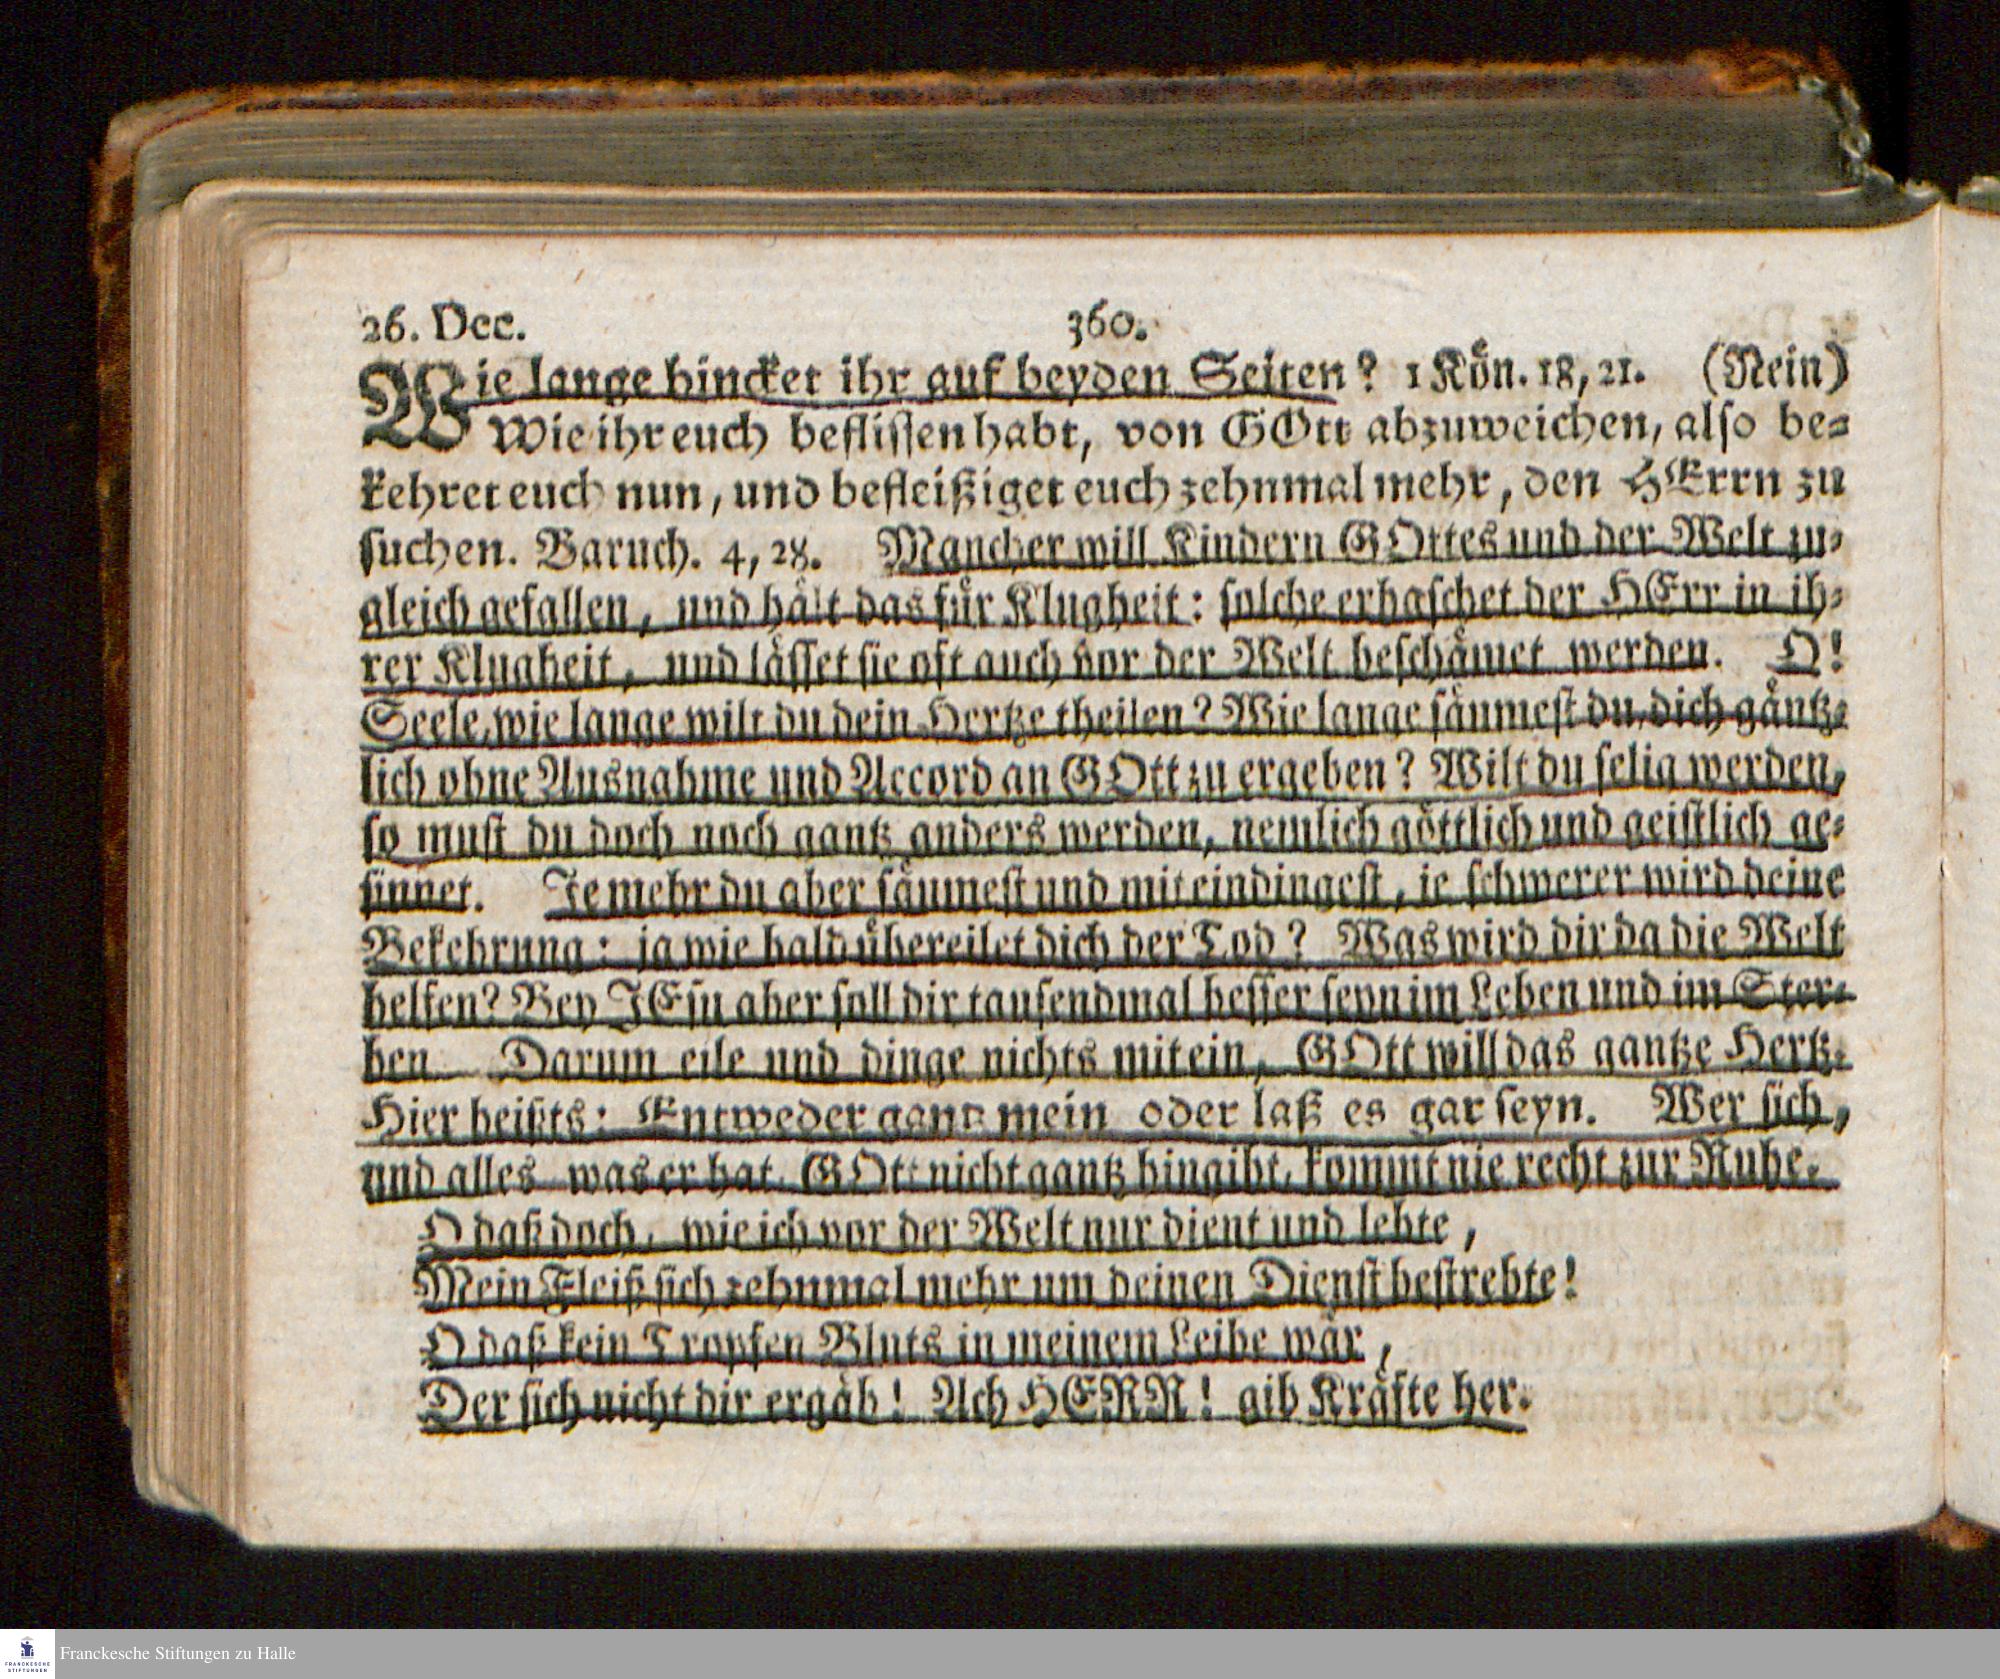 26. Dec. 360.
Wie lange hincket ihr auf beyden Seiten? 1 Kön. 18, 21. (Nein)
Wie ihr euch beflissen habt, von GOtt abzuweichen, also be-
kehret euch nun, und befleißiget euch zehnmal mehr, den HErrn zu
suchen. Baruch. 4, 28. Mancher will Kindern GOttes und der Welt zu-
gleich gefallen, und hält das für Klugheit: solche erhaschet der HErr in ih-
rer Klugheit, und lässet sie oft auch vor der Welt beschämet werden. O!
Seele, wie lange wilt du dein Hertze theilen? Wie lange säumest du, dich gäntz-
lich ohne Ausnahme und Accord an GOtt zu ergeben? Wilt du selig werden,
so must du doch noch gantz anders werden, nemlich göttlich und geistlich ge-
sinnet. Je mehr du aber säumest und mit eindingest, je schwerer wird deine
Bekehrung: ja wie bald übereilet dich der Tod? Was wird dir da die Welt
helfen? Bey JEsu aber soll dir tausendmal besser seyn im Leben und im Ster-
ben. Darum eile und dinge nichts mit ein, GOtt will das gantze Hertz.
Hier heißts: Entweder gantz mein oder laß es gar seyn. Wer sich,
und alles was er hat, GOtt nicht gantz hingibt, kommt nie recht zur Ruhe.
O daß doch, wie ich vor der Welt nur dient und lebte,
Mein Fleiß sich zehnmal mehr um deinen Dienst bestrebte!
O daß kein Tropfen Bluts in meinem Leibe wär,
Der sich nicht dir ergäb! Ach HERR! gib Kräfte her.
FRANCKESCHE
STIFTUNGEN
Franckesche Stiftungen zu Halle